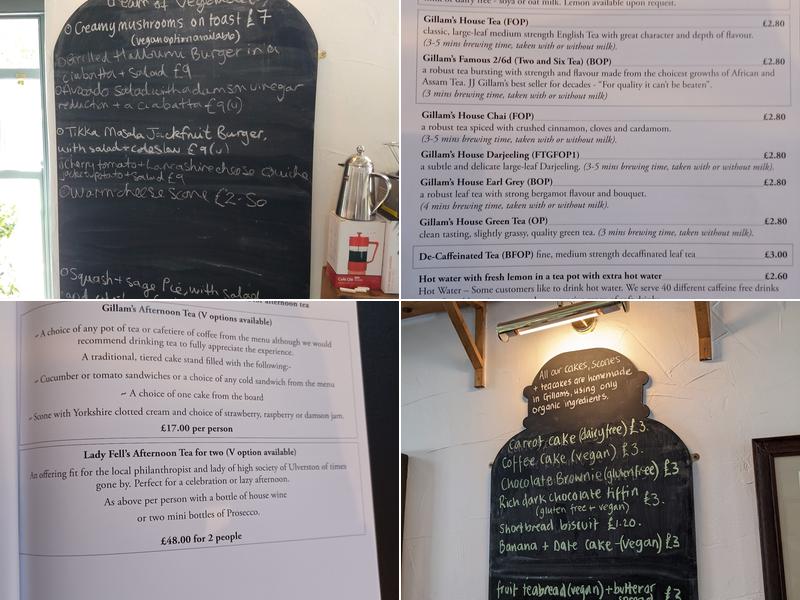 Cream of Vegetable
Creamy mushrooms on toast £7
(vegan option available)
Grilled Halloumi Burger in a
ciabatta + salad £9
Avocado salad with a damson vinegar
reduction + a ciabatta £9 (v)
Tikka Masala Jackfruit Burger,
with salad + coleslaw £9 (v)
Cherry tomato + Lancashire cheese Quiche
jacket potato + salad £9
Warm cheese scone £2.50
Squash + sage Pie, with salad
Café Olé
milk. Lemon available upon request.
Gillam's House Tea (FOP) £2.80
classic, large-leaf medium strength English Tea with great character and depth of flavour.
(3-5 mins brewing time, taken with or without milk).
Gillam's Famous 2/6d (Two and Six Tea) (BOP) £2.80
a robust tea bursting with strength and flavour made from the choicest growths of African and
Assam Tea. JJ Gillam's best seller for decades - "For quality it can't be beaten".
(3 mins brewing time, taken with or without milk)
Gillam's House Chai (FOP) £2.80
a robust tea spiced with crushed cinnamon, cloves and cardamom.
(3-5 mins brewing time, taken with or without milk).
Gillam's House Darjeeling (FTGFOP1) £2.80
a subtle and delicate large-leaf Darjeeling. (3-5 mins brewing time, taken with or without milk).
Gillam's House Earl Grey (BOP) £2.80
a robust leaf tea with strong bergamot flavour and bouquet.
(4 mins brewing time, taken with or without milk).
Gillam's House Green Tea (OP) £2.80
clean tasting, slightly grassy, quality green tea. (3 mins brewing time, taken with or without milk).
De-Caffeinated Tea (BFOP) fine, medium strength decaffinated leaf tea £3.00
Hot water with fresh lemon in a tea pot with extra hot water £2.60
Hot Water – Some customers like to drink hot water. We serve 40 different caffeine free drinks
afternoon tea
Gillam's Afternoon Tea (V options available)
~ A choice of any pot of tea or cafetiere of coffee from the menu although we would
recommend drinking tea to fully appreciate the experience.
A traditional, tiered cake stand filled with the following:-
~ Cucumber or tomato sandwiches or a choice of any cold sandwich from the menu
~ A choice of one cake from the board
~ Scone with Yorkshire clotted cream and choice of strawberry, raspberry or damson jam.
£17.00 per person
Lady Fell's Afternoon Tea for two (V option available)
An offering fit for the local philanthropist and lady of high society of Ulverston of times
gone by. Perfect for a celebration or lazy afternoon.
As above per person with a bottle of house wine
or two mini bottles of Prosecco.
£48.00 for 2 people
All our cakes, scones
+ teacakes are homemade
in Gillams, using only
organic ingredients.
Carrot cake (dairy free) £3.
Coffee cake (vegan) £3.
Chocolate Brownie (gluten free) £3
Rich dark chocolate tiffin £3.
(gluten free + vegan)
Shortbread biscuit £1.20.
Banana + Date cake - (vegan) £3
fruit teabread (vegan) + butter or